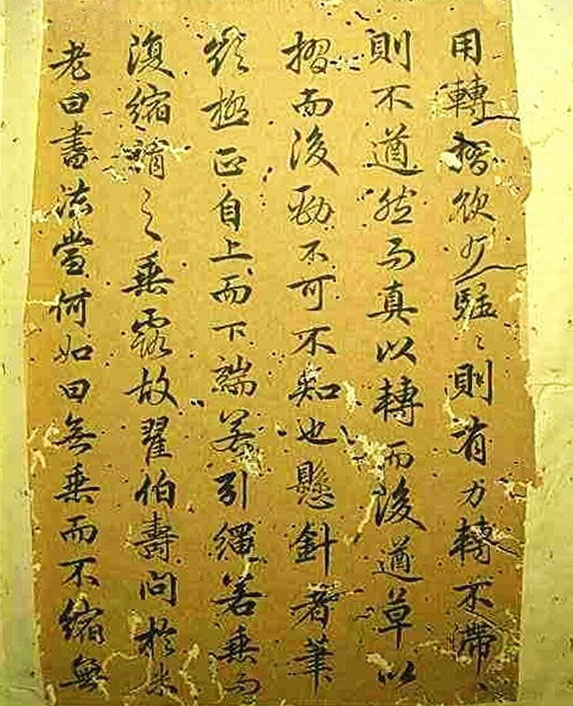 用轉摺欲少駐々則有力轉不滯々
則不遒然而真以轉而後遒草以
摺而後勁不可不知也懸針者筆
欲極正自上而下端若引繩若垂而
復縮謂之垂露故翟伯壽問於米
老曰書法當何如曰無垂而不縮無